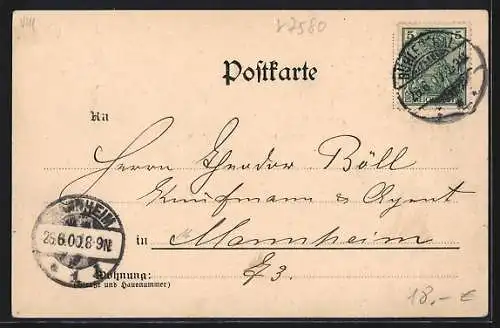 VIII
27580
5 5
Postkarte
An
Herrn Theodor Böll
Kaufmann & Agent
in Mannheim
MANNHEIM
26.6.00.8-9N.
1
Wohnung:
(Straße und Hausnummer)
18.- €